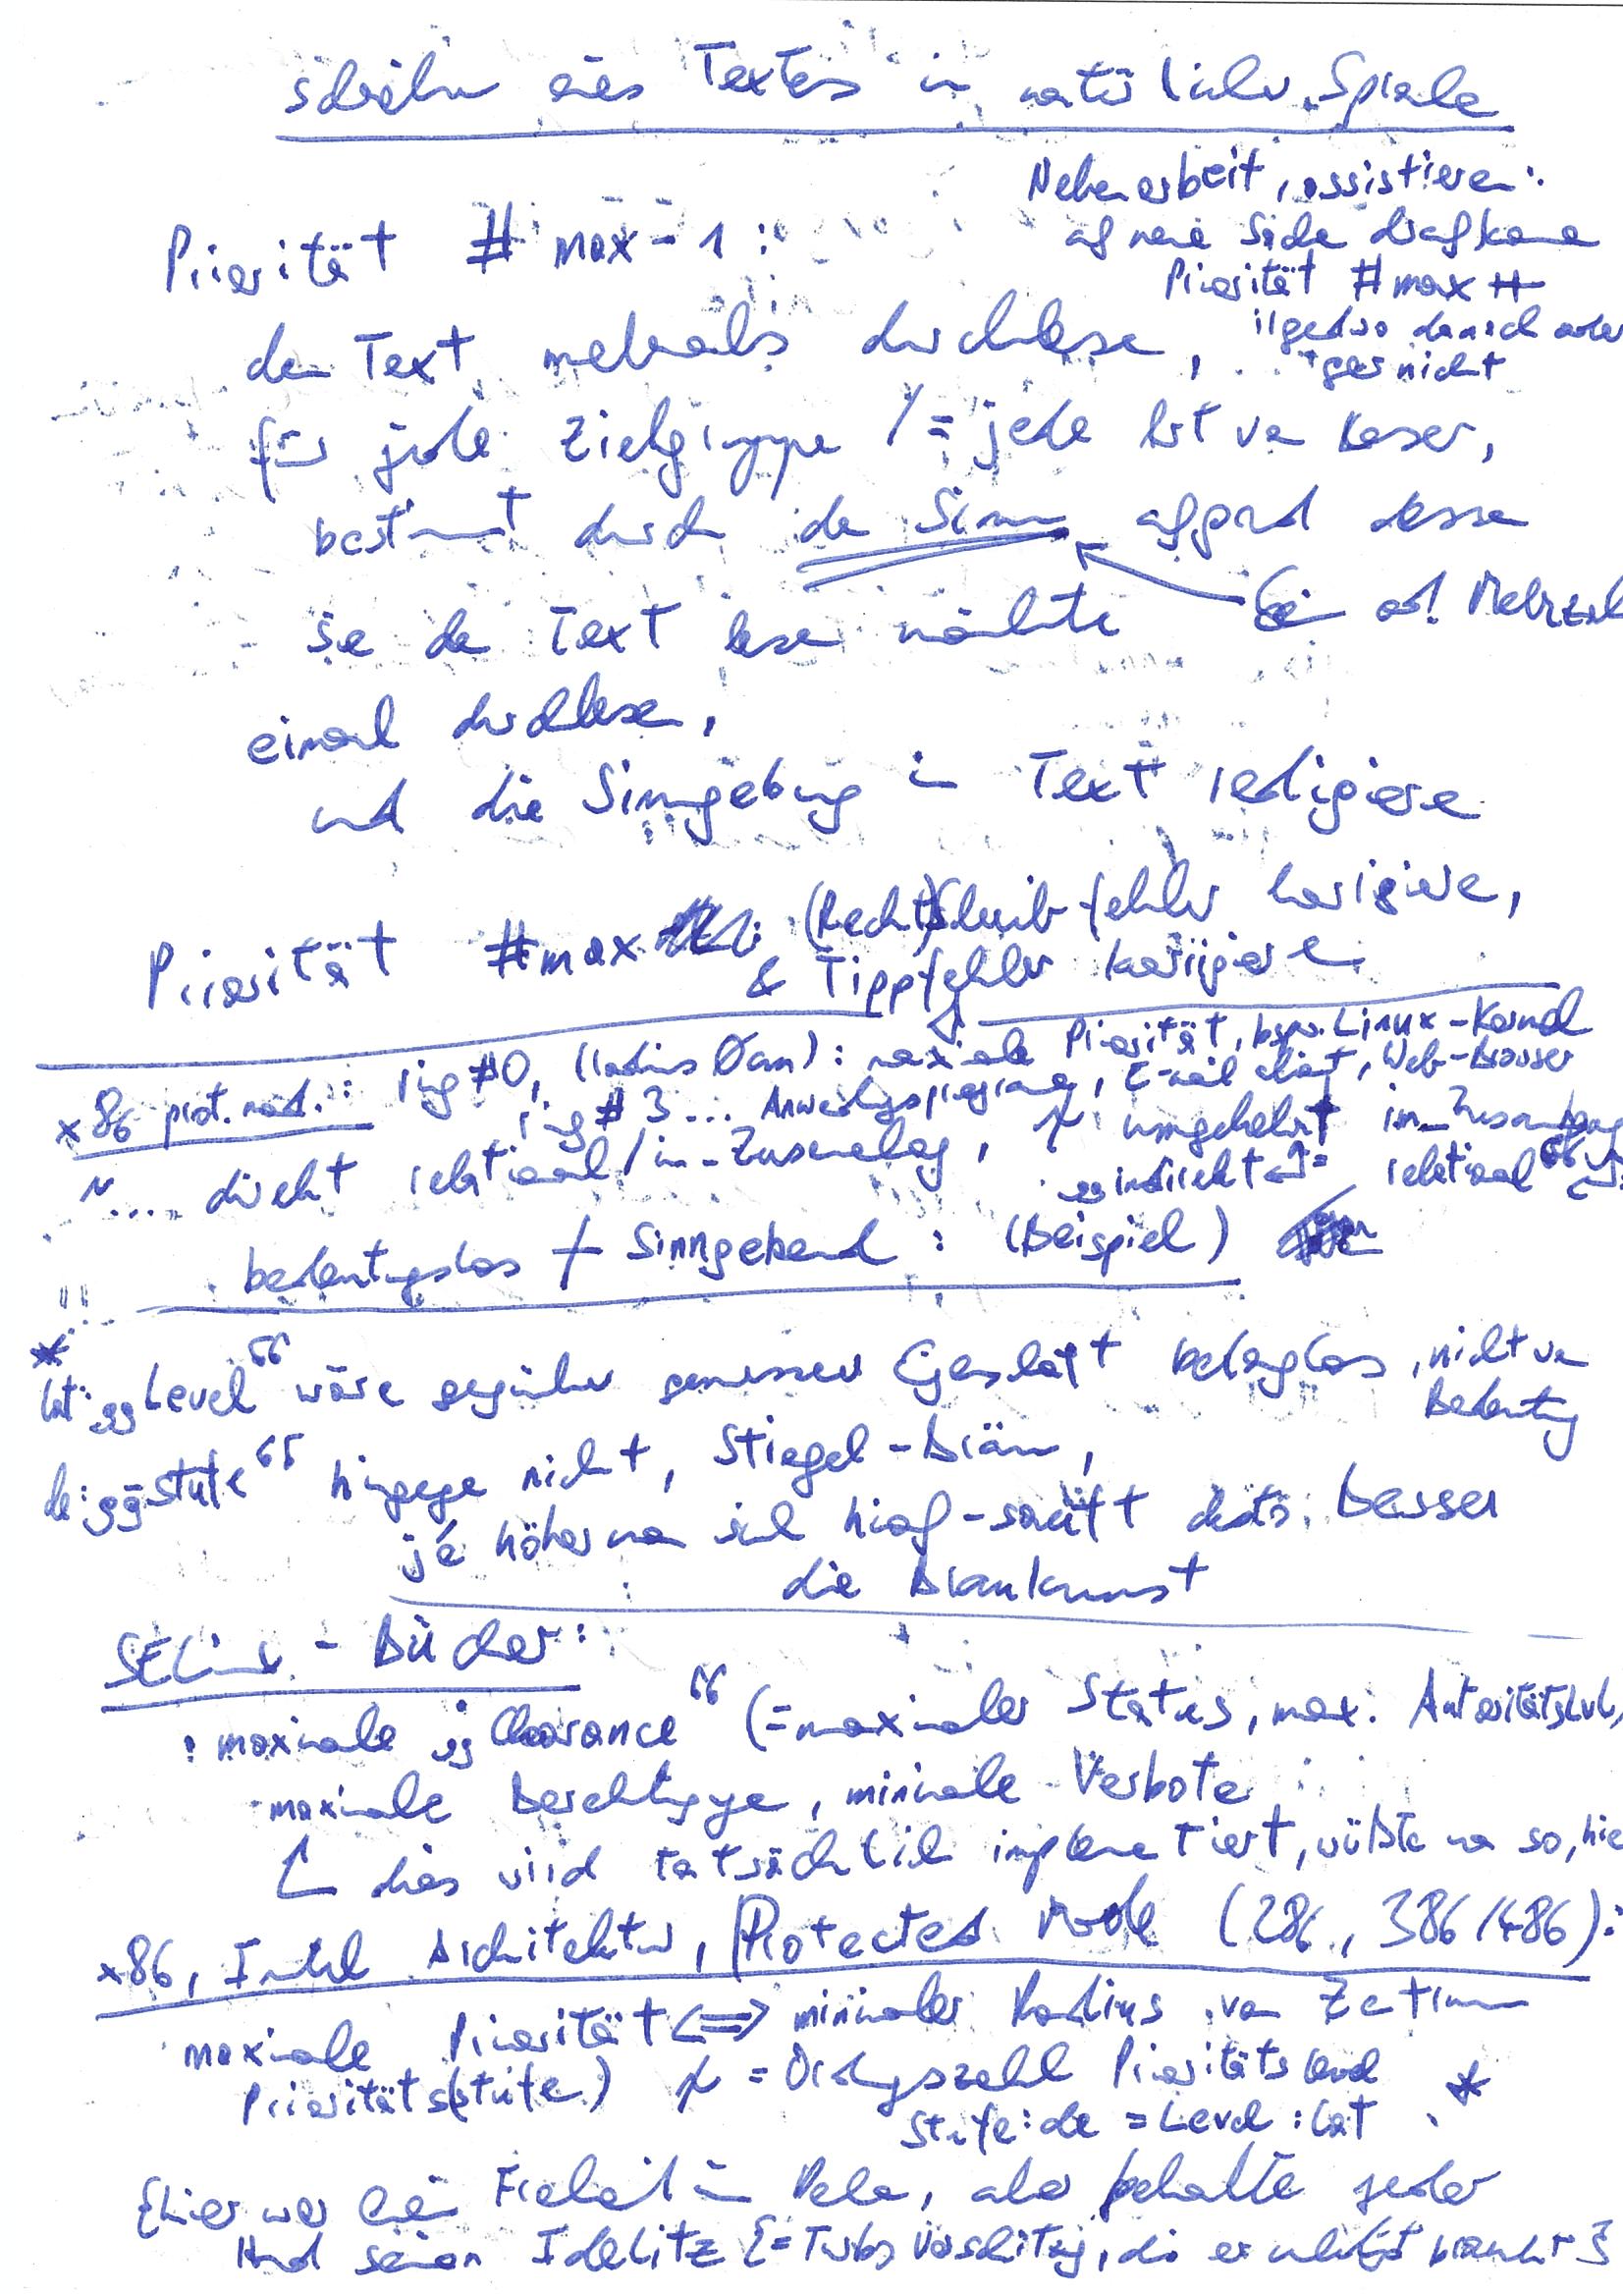 schreiben eines Textes in natürlicher Sprache
Nebenarbeit, assistieren:
auf seine Seite draufkommen
Priorität #max
irgendwo danach oder
gar nicht
Priorität #max-1:
den Text mehrmals durchlesen,
für jede Zielgruppe /= jede Art von Leser,
bestimmt durch den Sinn aufgrund dessen
sie den Text lesen möchte
Mehrzahl
einmal durchlesen,
und die Sinngebung im Text redigieren
Priorität #max : (Recht)Schreibfehler korrigieren,
& Tippfehler korrigieren
x86 prot. mod.: ring #0, (radius 0cm): maximale Priorität, bspw. Linux-Kernel
ring #3... Anwendungsprogramme, E-mail client, Web-Browser
~... direkt rektional/im_Zusammenhang, umgekehrt im_Zusammenhang
„indirekt = rektional“
bedeutungslos ≠ Sinngebend: (Beispiel)
*
lat: „Level“ wäre gegenüber gemessener Eigenschaft belanglos, nicht von
Bedeutung
de: „Stufe“ hingegen nicht, Stiegel-Bräu,
je höher man sich hinauf-säuft desto besser
die Braukunst
SELinux - Bücher:
: maximale „Clearance“ (=maximaler Status, max. Autoritätslevel,
maximale Berechtigungen, minimale Verbote
dies wird tatsächlich implementiert, wüßte man so, hie
x86, Intel Architektur, Protected Mode (286, 386/486):
maximale Priorität <=> minimaler Radius vom Zentrum
Prioritäts(stufe) = Ordnungszahl Prioritätslevel
Stufe:de = Level:lat *
{hier war kein Freiheit im Reden, also behalte jeder
Hund seinen {= , die er nicht braucht}